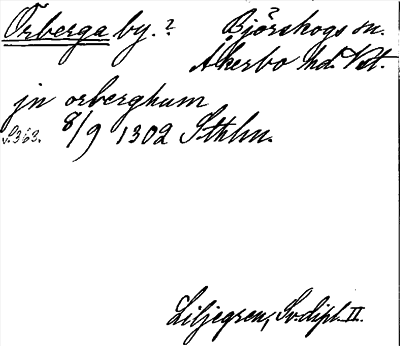 Örberga by.? Björskogs sn.
Åkerbo hd. Vstl.
jn orberghum
s. 363. 8/9 1302 Sthlm.
Liljegren, Sv. dipl. II.